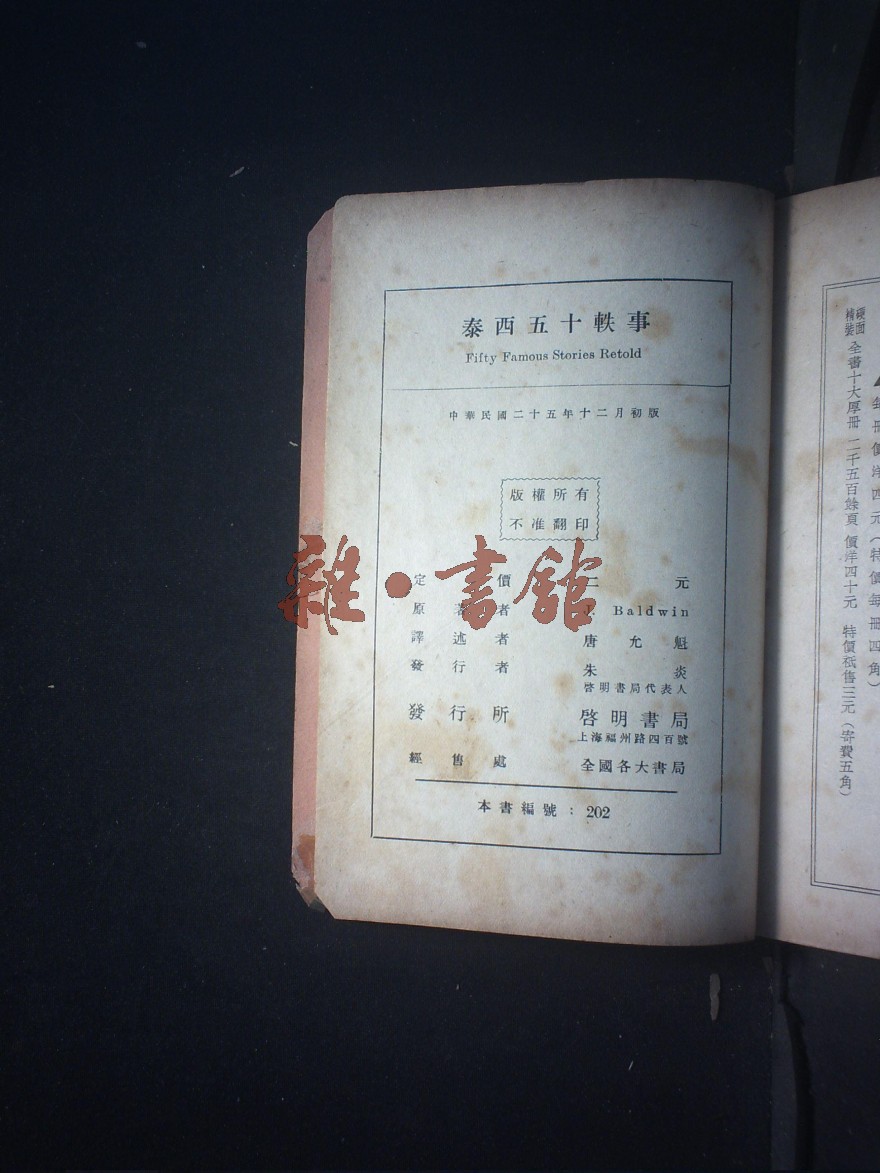 泰西五十軼事
Fifty Famous Stories Retold
中華民國二十五年十二月初版
版權所有
不准翻印
定價 二元
原著者 J. Baldwin
譯述者 唐允魁
發行者 朱炎
啓明書局代表人
發行所 啓明書局
上海福州路四百號
經售處 全國各大書局
本書編號：202
雜·書館
每冊價洋四元（特價每冊四角）
硬面精裝 全書十大厚冊 二千五百餘頁 價洋四十元 特價祇售三元（寄費五角）